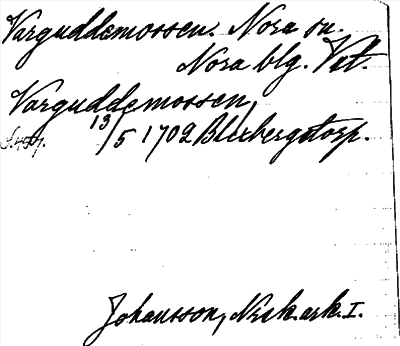 Varguddemossen. Nora sn.
Nora blg. Vstm.
Varguddemossen,
13/5 1702 Blexbergstorp.
S. 457.
Johansson, Nork. ark. I.